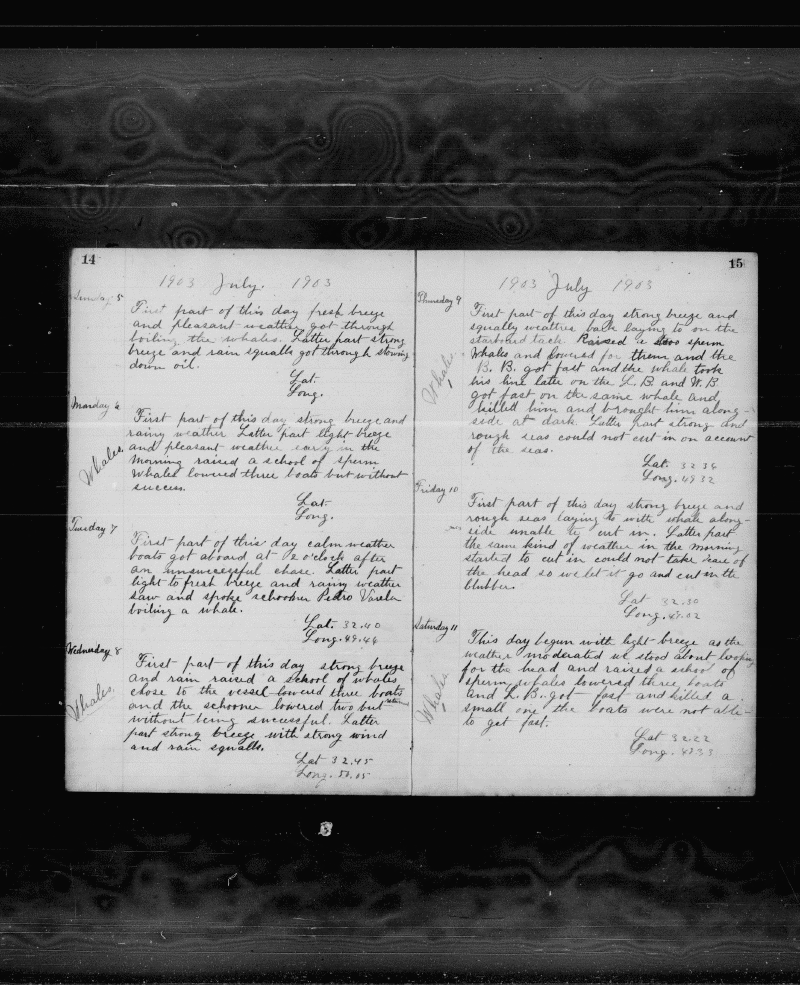 14
1903 July. 1903
Sunday 5
First part of this day fresh breeze
and pleasant weather, got through
boiling the whales. Latter part strong
breeze and rain squalls got through stowing
down oil.
Lat.
Long.
Monday 6
First part of this day strong breeze and
rainy weather Latter part light breeze
Whales and pleasant weather early in the
morning raised a school of sperm
Whales lowered three boats but without
success.
Lat.
Long.
Tuesday 7
First part of this day calm weather
boats got aboard at 2 o'clock after
an unsuccessful chase. Latter part
light to fresh breeze and rainy weather
saw and spoke schooner Pedro Varela
boiling a whale.
Lat. 32.40
Long. 49.44
Wednesday 8
First part of this day strong breeze
and rain raised a school of whales
Whales close to the vessel lowered three boats
and the schooner lowered two but
without being successful. Latter
part strong breeze with strong wind
and rain squalls.
Lat 32.45
Long. 50.05
15
1903 July 1903
Thursday 9
First part of this day strong breeze and
squally weather back laying to on the
starboard tack. Raised a sperm
Whales Whales and lowered for them and the
B. B. got fast and the whale took
his line later on the L. B and W. B
got fast on the same whale and
killed him and brought him along-
side at dark. Latter part strong and
rough seas could not cut in on account
of the seas.
Lat. 32 36
Long. 49 32
Friday 10
First part of this day strong breeze and
rough seas laying to with whale along-
side unable to cut in. Latter part
the same kind of weather in the morning
started to cut in could not take care of
the head so we let it go and cut in the
blubber.
Lat 32.30
Long. 49.02
Saturday 11
This day begun with light breeze as the
weather moderated we stood about looking
for the head and raised a school of
Whales sperm whales lowered three boats
and L. B. got fast and killed a
small one the boats were not able
to get fast.
Lat 32.22
Long. 49 33